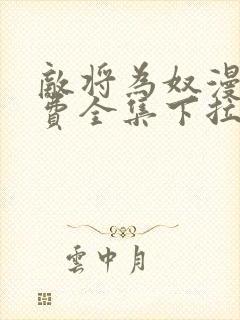 敵將為奴漫
費全集下拉
雲中月